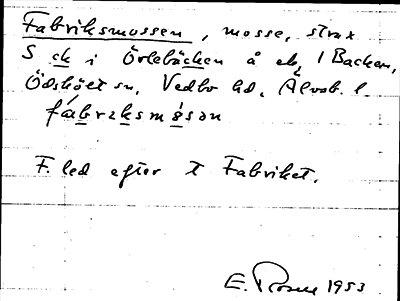 Fabriksmossen, mosse, strax
S ck i Örlebäcken å ek, 1 Backen,
Ödsköelt sn, Vedbo hd, Älvsb. l.
fábrəksmåsən
F. led efter t Fabriket.
E. Rosell 1953